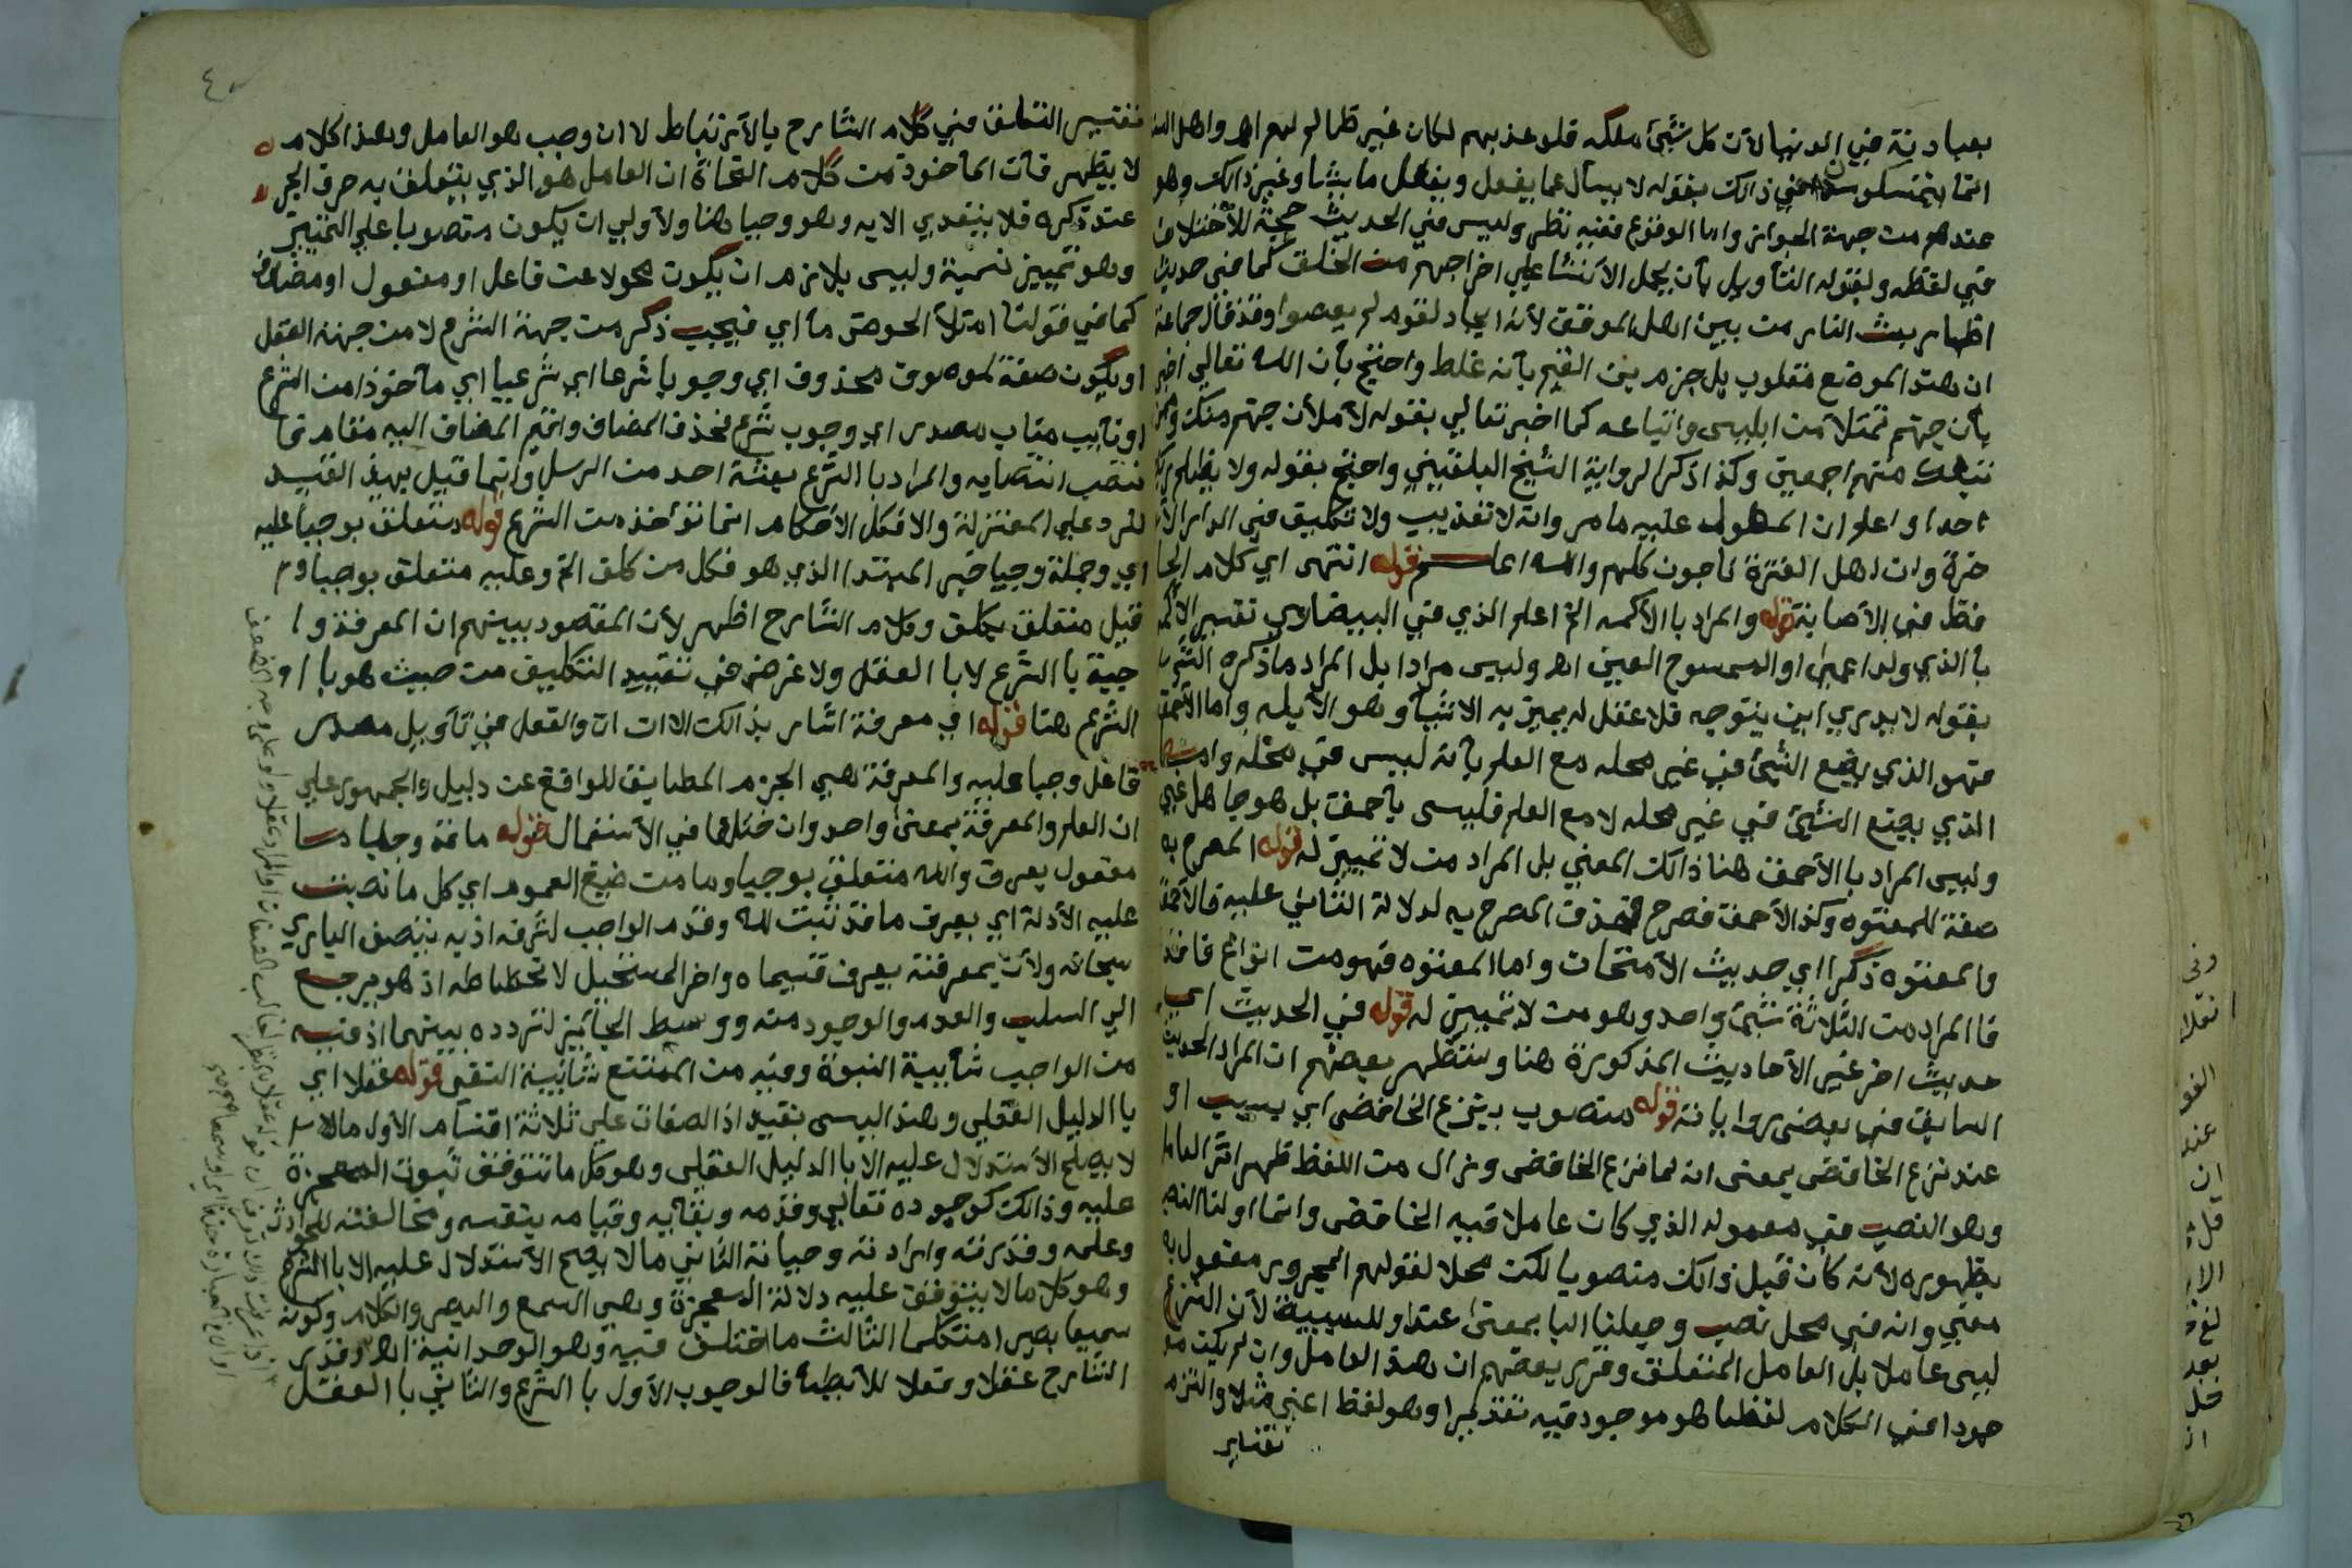 بعبادته في الدنيا لأن كل شيئ ملكه فلو عذبهم لكان غير ظالم لهم اهـ واهل السنة
انما يتمسكون في ذالك بقوله لا يسأل عما يفعل ويفعل ما يشا وغير ذالك وهو
عندهم من جهة الجواز واما الوقوع ففيه نظر وليس في الحديث حجة للأختلاف
في لفظه ولقبوله التأويل بأن يحمل الأنشا علي اخراجهم من الخلق كما في حديث
اظهار بعث النار من بين اهل الموقف لأنه ايجاد لقوم لم يعصوا وقد قال جماعة
ان هذا الموضع مقلوب بل جزم بن القيم بأنه غلط واحتج بأن الله تعالي اخبر
بأن جهنم تمتلأ من ابليس واتباعه كما اخبر تعالي بقوله لأملأن جهنم منك وممن
تبعك منهم اجمعين وكذا انكر الرواية الشيخ البلقيني واحتج بقوله ولا يظلم ربك
احدا واعلم ان المعول عليه ما مر وانه لا تعذيب ولا تكليف في الدار الأ
خرة وان اهل الفترة ناجون كلهم والله اعلم قوله انتهى اي كلام الحا
فظ في الأصابة قوله والمراد با الأكمه الخ اعلم الذي في البيضاوي تفسير الأكمه
با الذي ولد اعمى او الممسوح العين اهـ وليس مرادا بل المراد ما ذكره الشر
بقوله لا يدري اين يتوجه فلا عقل له يميز به الاشيأ وهو الأبله واما الأحمق
فهو الذي يضع الشيئ في غير محله مع العلم بأنه ليس في محله واما
الذي يضع الشيئ في غير محله لا مع العلم فليس بأحمق بل هو جاهل غبي
وليس المراد با الأحمق هنا ذالك المعني بل المراد من لا تمييز له قوله المصرح به
صفة للمعتوه وكذا الأحمق فصرح فحذف المصرح به لدلالة الثاني عليه فالأحمق
والمعتوه ذكرا اي حديث الأمتحان واما المعتوه فهو من انواع فاقد
فا المراد من الثلاثة شيئ واحد وهو من لا تمييز له قوله في الحديث اي
حديث اخر غير الأحاديث المذكورة هنا واستظهر بعضهم ان المراد الحديث
السابق في بعض رواياته قوله منصوب بنزع الخافض اي بسبب او
عند نزع الخافض بمعنى انه لما نزع الخافض وزال من اللفظ ظهر اثر العامل
وهو النصب في معموله الذي كان عاملا فيه الخافض وانما اولنا النصب
بظهوره لأنه كان قبل ذالك منصوبا لكن محلا لقولهم المجرور مفعول به
معني وانه في محل نصب وجعلنا البا بمعنى عند او للسببية لأن النزع
ليس عاملا بل العامل المتعلق وقرر بعضهم ان هذا العامل وان لم يكن مو
جودا في الكلام لفظا هو موجود فيه تقديرا وهو لفظ اعني مثلا والتزم
تفسير
تفسير التعلق في كلام الشارح با الأرتباط لا ان وجب هو العامل وهذا كلام
لا يظهر فان المأخوذ من كلام النحاة ان العامل هو الذي يتعلق به حرف الجر
عند ذكره فلا ينبغي الا به وهو وجبا هنا والأولي ان يكون منصوبا علي التمييز
وهو تمييز نسبة وليس يلازم ان يكون محولا عن فاعل او مفعول او مضاف
كما في قولنا امتلأ الحوض مأ اي فيجب ذكر من جهة الشرع لا من جهة العقل
او يكون صفة لموصوف محذوف اي وجوبا شرعا اي شرعيا اي مأخوذا من الشرع
او نائب مناب مصدر اي وجوب شرع فحذف المضاف واقيم المضاف اليه مقامه فا
نتصب انتصابه والمراد با الشرع بعثة احد من الرسل وانما قيل بهذا القيد
للرد علي المعتزلة والا فكل الأحكام انما تؤخذ من الشرع قوله متعلق بوجبا عليه
اي وجملة وجبا خبر المبتدا الذي هو فكل من كلف الخ وعليه متعلق بوجبا و
قيل متعلق بكلف وكلام الشارح اظهر لأن المقصود بينهم ان المعرفة وا
جبة با الشرع لا با العقل ولا غرض في تقييد التكليف من حيث هو با
الشرع هنا قوله اي معرفة اشار بذالك الا ان ان والفعل في تأويل مصدر
فاعل وجبا عليه والمعرفة هي الجزم المطابق للواقع عن دليل والجمهور علي
ان العلم والمعرفة بمعنى واحد وان ختلفا في الأستعمال قوله ما قد وجبا
مفعول يعرف ولله متعلق بوجبا وما من صيغ العموم اي كل ما نصبت
عليه الأدلة اي يعرف ما قد ثبت لله وقدم الواجب لشرفه اذ به يتصف الباري
سبحانه ولأن بمعرفته يعرف قسيماه واخر المستحيل لانحطاطه اذ هو يرجع
الي السلب والعدم والوجود منه ووسط الجائز لتردده بينهما اذ فيه
من الواجب شأيبة الثبوت وفيه من الممتنع شائبة النفي قوله عقلا اي
با الدليل العقلي وهذا ليس بقيد اذ الصفات علي ثلاثة اقسام الأول ما
لا يصلح الأستدلال عليه الا با الدليل العقلي وهو كل ما تتوقف ثبوت المعجزة
عليه وذالك كوجوده تعالي وقدمه وبقائه وقيامه بنفسه ومخالفته للحوادث
وعلمه وقدرته وارادته وحياته الثاني ما لا يصح الأستدلال عليه الا با الشرع
وهو كل ما لا يتوقف عليه دلالة المعجزة وهي السمع والبصر والكلام وكونه
سميعا بصيرا متكلما الثالث ما اختلف فيه وهو الوحدانية اهـ وقدر
الشارح عقلا وفعلا للأيطأ فالوجوب الأول با الشرع والثاني با العقل